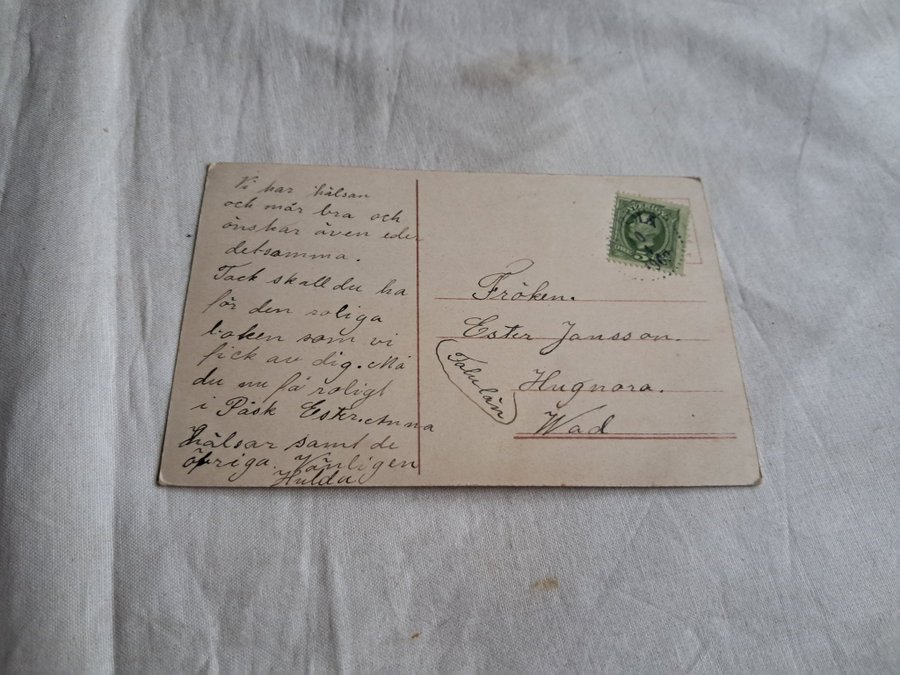 Vi har hälsan
och mår bra och
önskar även eder
detsamma.
Tack skall du ha
för den roliga
boken som vi
fick av dig. Må
du nu få roligt
i Påsk Ester. Anna
hälsar samt de
övriga. Vänligen
Hulda
SVERIGE
5
Fröken.
Ester Jansson.
Hugnora.
Wad
Falu län